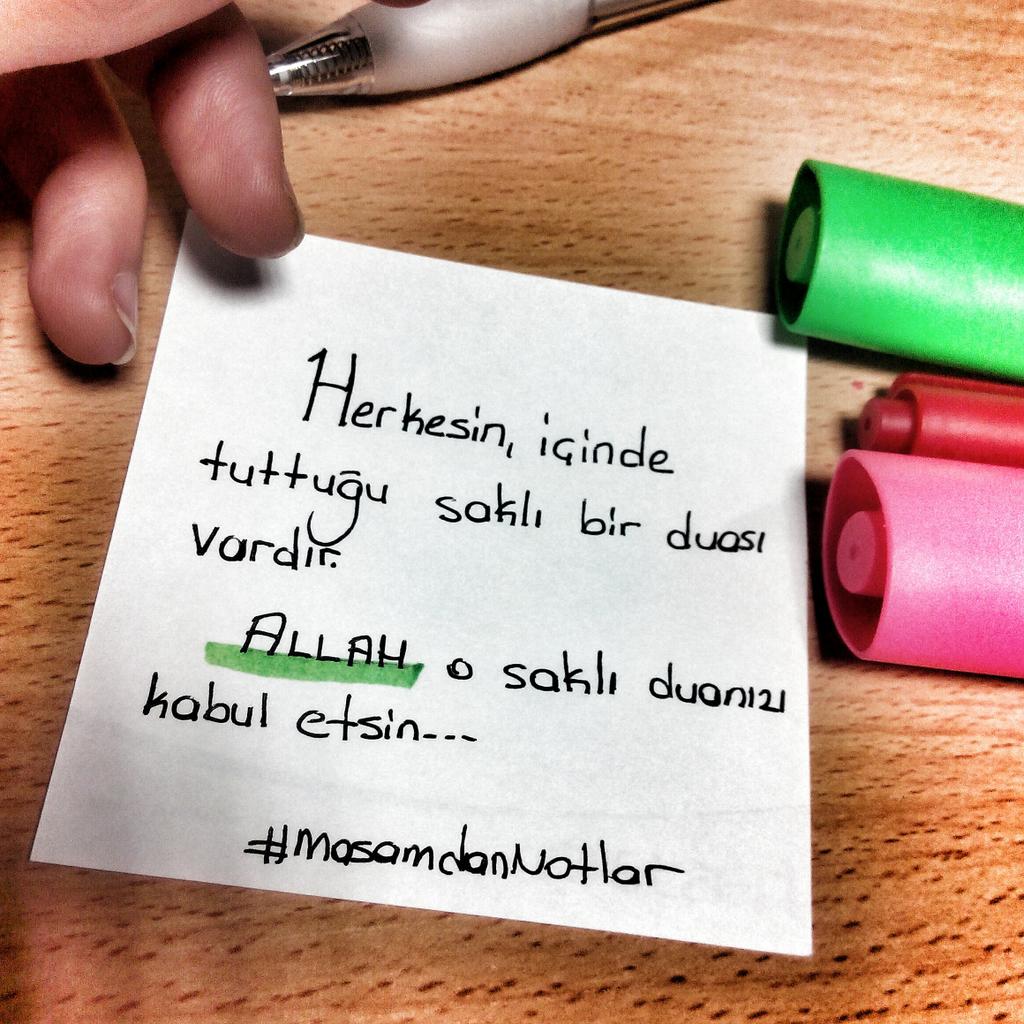 Herkesin, içinde
tuttuğu saklı bir duası
vardır.
ALLAH o saklı duanızı
kabul etsin---
#masamdanNotlar